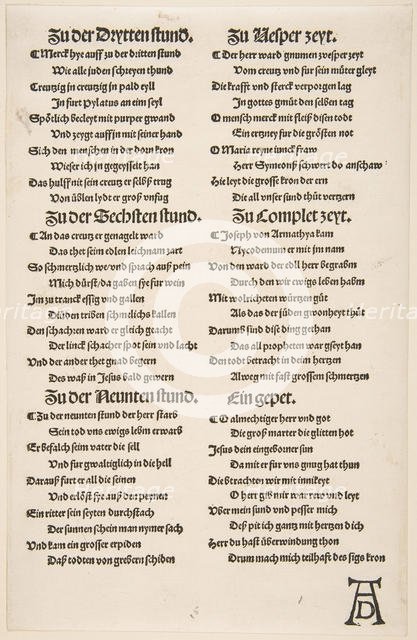 Zu der Drytten stund.
Merck hye auff zu der dritten stund
Wie alle juden schreyen thund
Creutzig in creutzig in pald eyll
In furt Pylatus an eim seyl
Spötlich becleyt mit purper gwand
Vnd zeygt auff in mit seiner hand
Sich den menschen in der dorn kron
Wie ser ich in gegeysselt han
Das hulff nit sein creutz er selbst trug
Von üblen lydt er groß vnfug
Zu der Sechsten stund.
An das creutz er genagelt ward
Das thet seim edlen leichnam zart
So schmertzlich we vnd sprach auß pein
Mich dürst da gaben sye fur wein
Im zu tranck essig vnd gallen
Die juden triben schmelichs kallen
Den schachren ward er gleich geacht
Der linck schacher spot sein vnd lacht
Vnd der ander thet gnad begern
Des waß in Jesus bald gewern
Zu der Neunten stund.
Zu der neunten stund der herr starb
Sein tod vns ewigs lebm erwarb
Er befalch seim vater die sell
Vnd fur gwaltiglich in die hell
Darauß furt er all die seinen
Vnd erlöst sye auß den peynen
Ein ritter sein seyten durchstach
Der sunnen schein man nymer sach
Vnd kam ein grosser erpiden
Daß todten von grebern schiden
Zu Vesper zeyt.
Der herr ward gnumen zvesper zeyt
Vom creutz vnd fur sein müter gleyt
Die krafft vnd sterck verporgen lag
In gottes gmüt den selben tag
O mensch merck mit fleiß disen todt
Ein ertzney fur die grösten not
O Maria reyne junckfraw
Herr Symeonß schwert do anschaw
Hie leyt die grosse kron der ern
Die all vnser sund thüt verzern
Zu Complet zeyt.
Joseph von Armathya kam
Nycodemum er mit jm nam
Von den ward der edll herr begrabm
Durch den wir ewigs leben habm
Mit wolrichenten würtzen güt
Als das der juden gwonheyt thüt
Darumb sind dise ding gethan
Das all propheten war gseyt han
Den todt betracht in deim hertzen
Alweg mit fast grossem schmertzen
Ein gepet.
O almechtiger herr vnd got
Die groß marter die gelitten hot
Jesus dein eingeborner sun
Da mit er fur vns gnug hat thun
Die betrachten wir mit innikeyt
O herr gib mir war rew vnd leyt
Vber mein sund vnd pesser mich
Deß pit ich gantz mit hertzen dich
Herr du hast überwindung thon
Drum mach mich teilhaft des sigs kron
AD
Heritage
Heritage